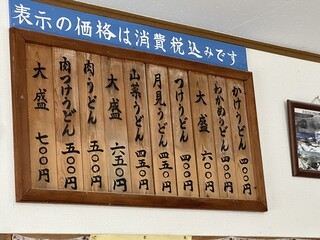 表示の価格は消費税込みです
かけうどん 四〇〇円
わかめうどん 四〇〇円
大盛 六〇〇円
つけうどん 四〇〇円
月見うどん 四五〇円
山菜うどん 四五〇円
大盛 六五〇円
肉うどん 五〇〇円
肉つけうどん 五〇〇円
大盛 七〇〇円